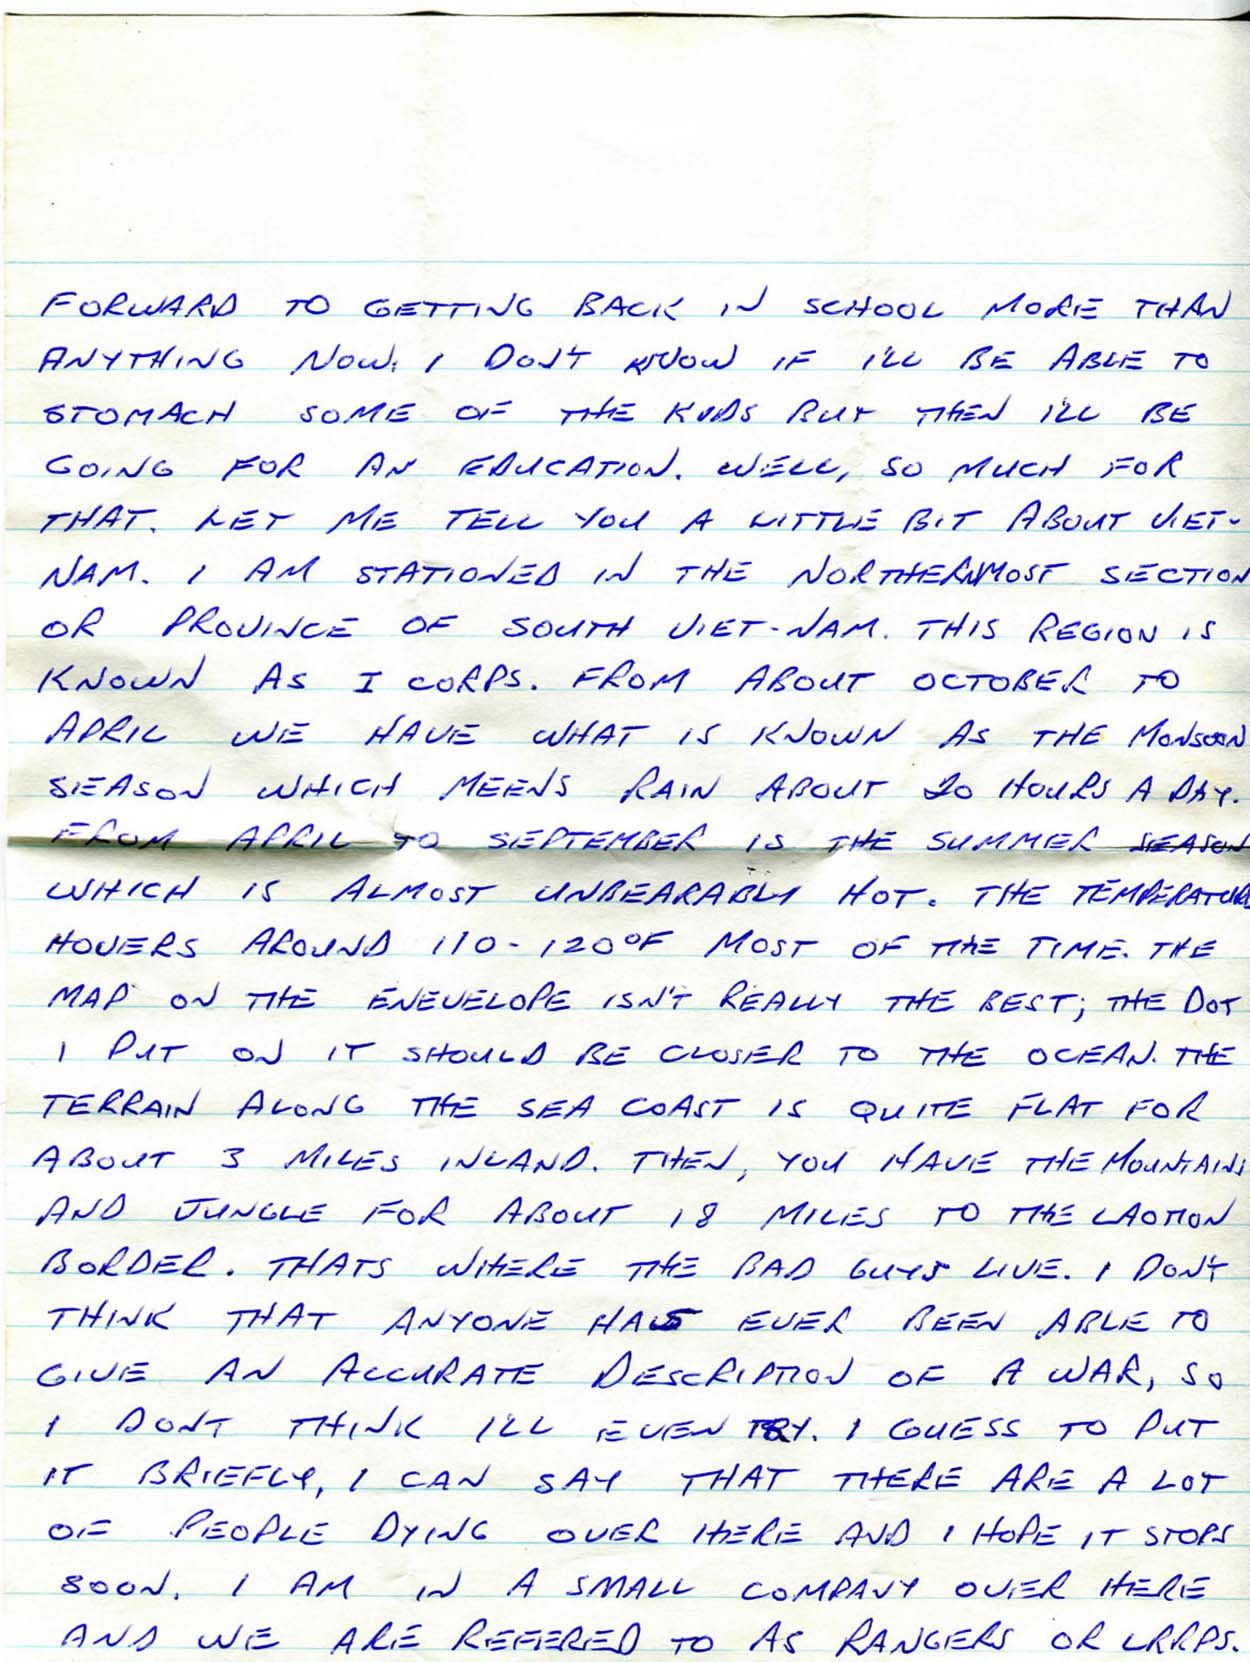 FORWARD TO GETTING BACK IN SCHOOL MORE THAN
ANYTHING NOW. I DON'T KNOW IF I'LL BE ABLE TO
STOMACH SOME OF THE KIDS BUT THEN I'LL BE
GOING FOR AN EDUCATION. WELL, SO MUCH FOR
THAT. LET ME TELL YOU A LITTLE BIT ABOUT VIET-
NAM. I AM STATIONED IN THE NORTHERNMOST SECTION
OR PROVINCE OF SOUTH VIET-NAM. THIS REGION IS
KNOWN AS I CORPS. FROM ABOUT OCTOBER TO
APRIL WE HAVE WHAT IS KNOWN AS THE MONSOON
SEASON WHICH MEENS RAIN ABOUT 20 HOURS A DAY.
FROM APRIL TO SEPTEMBER IS THE SUMMER SEASON
WHICH IS ALMOST UNBEARABLY HOT. THE TEMPERATURE
HOVERS AROUND 110-120°F MOST OF THE TIME. THE
MAP ON THE ENEVELOPE ISN'T REALLY THE BEST; THE DOT
I PUT ON IT SHOULD BE CLOSER TO THE OCEAN. THE
TERRAIN ALONG THE SEA COAST IS QUITE FLAT FOR
ABOUT 3 MILES INLAND. THEN, YOU HAVE THE MOUNTAINS
AND JUNGLE FOR ABOUT 18 MILES TO THE LAOTION
BORDER. THATS WHERE THE BAD GUYS LIVE. I DON'T
THINK THAT ANYONE HAS EVER BEEN ABLE TO
GIVE AN ACCURATE DESCRIPTION OF A WAR, SO
I DONT THINK I'LL EVEN TRY. I GUESS TO PUT
IT BRIEFLY, I CAN SAY THAT THERE ARE A LOT
OF PEOPLE DYING OVER HERE AND I HOPE IT STOPS
SOON. I AM IN A SMALL COMPANY OVER HERE
AND WE ARE REFERED TO AS RANGERS OR LRRPS.